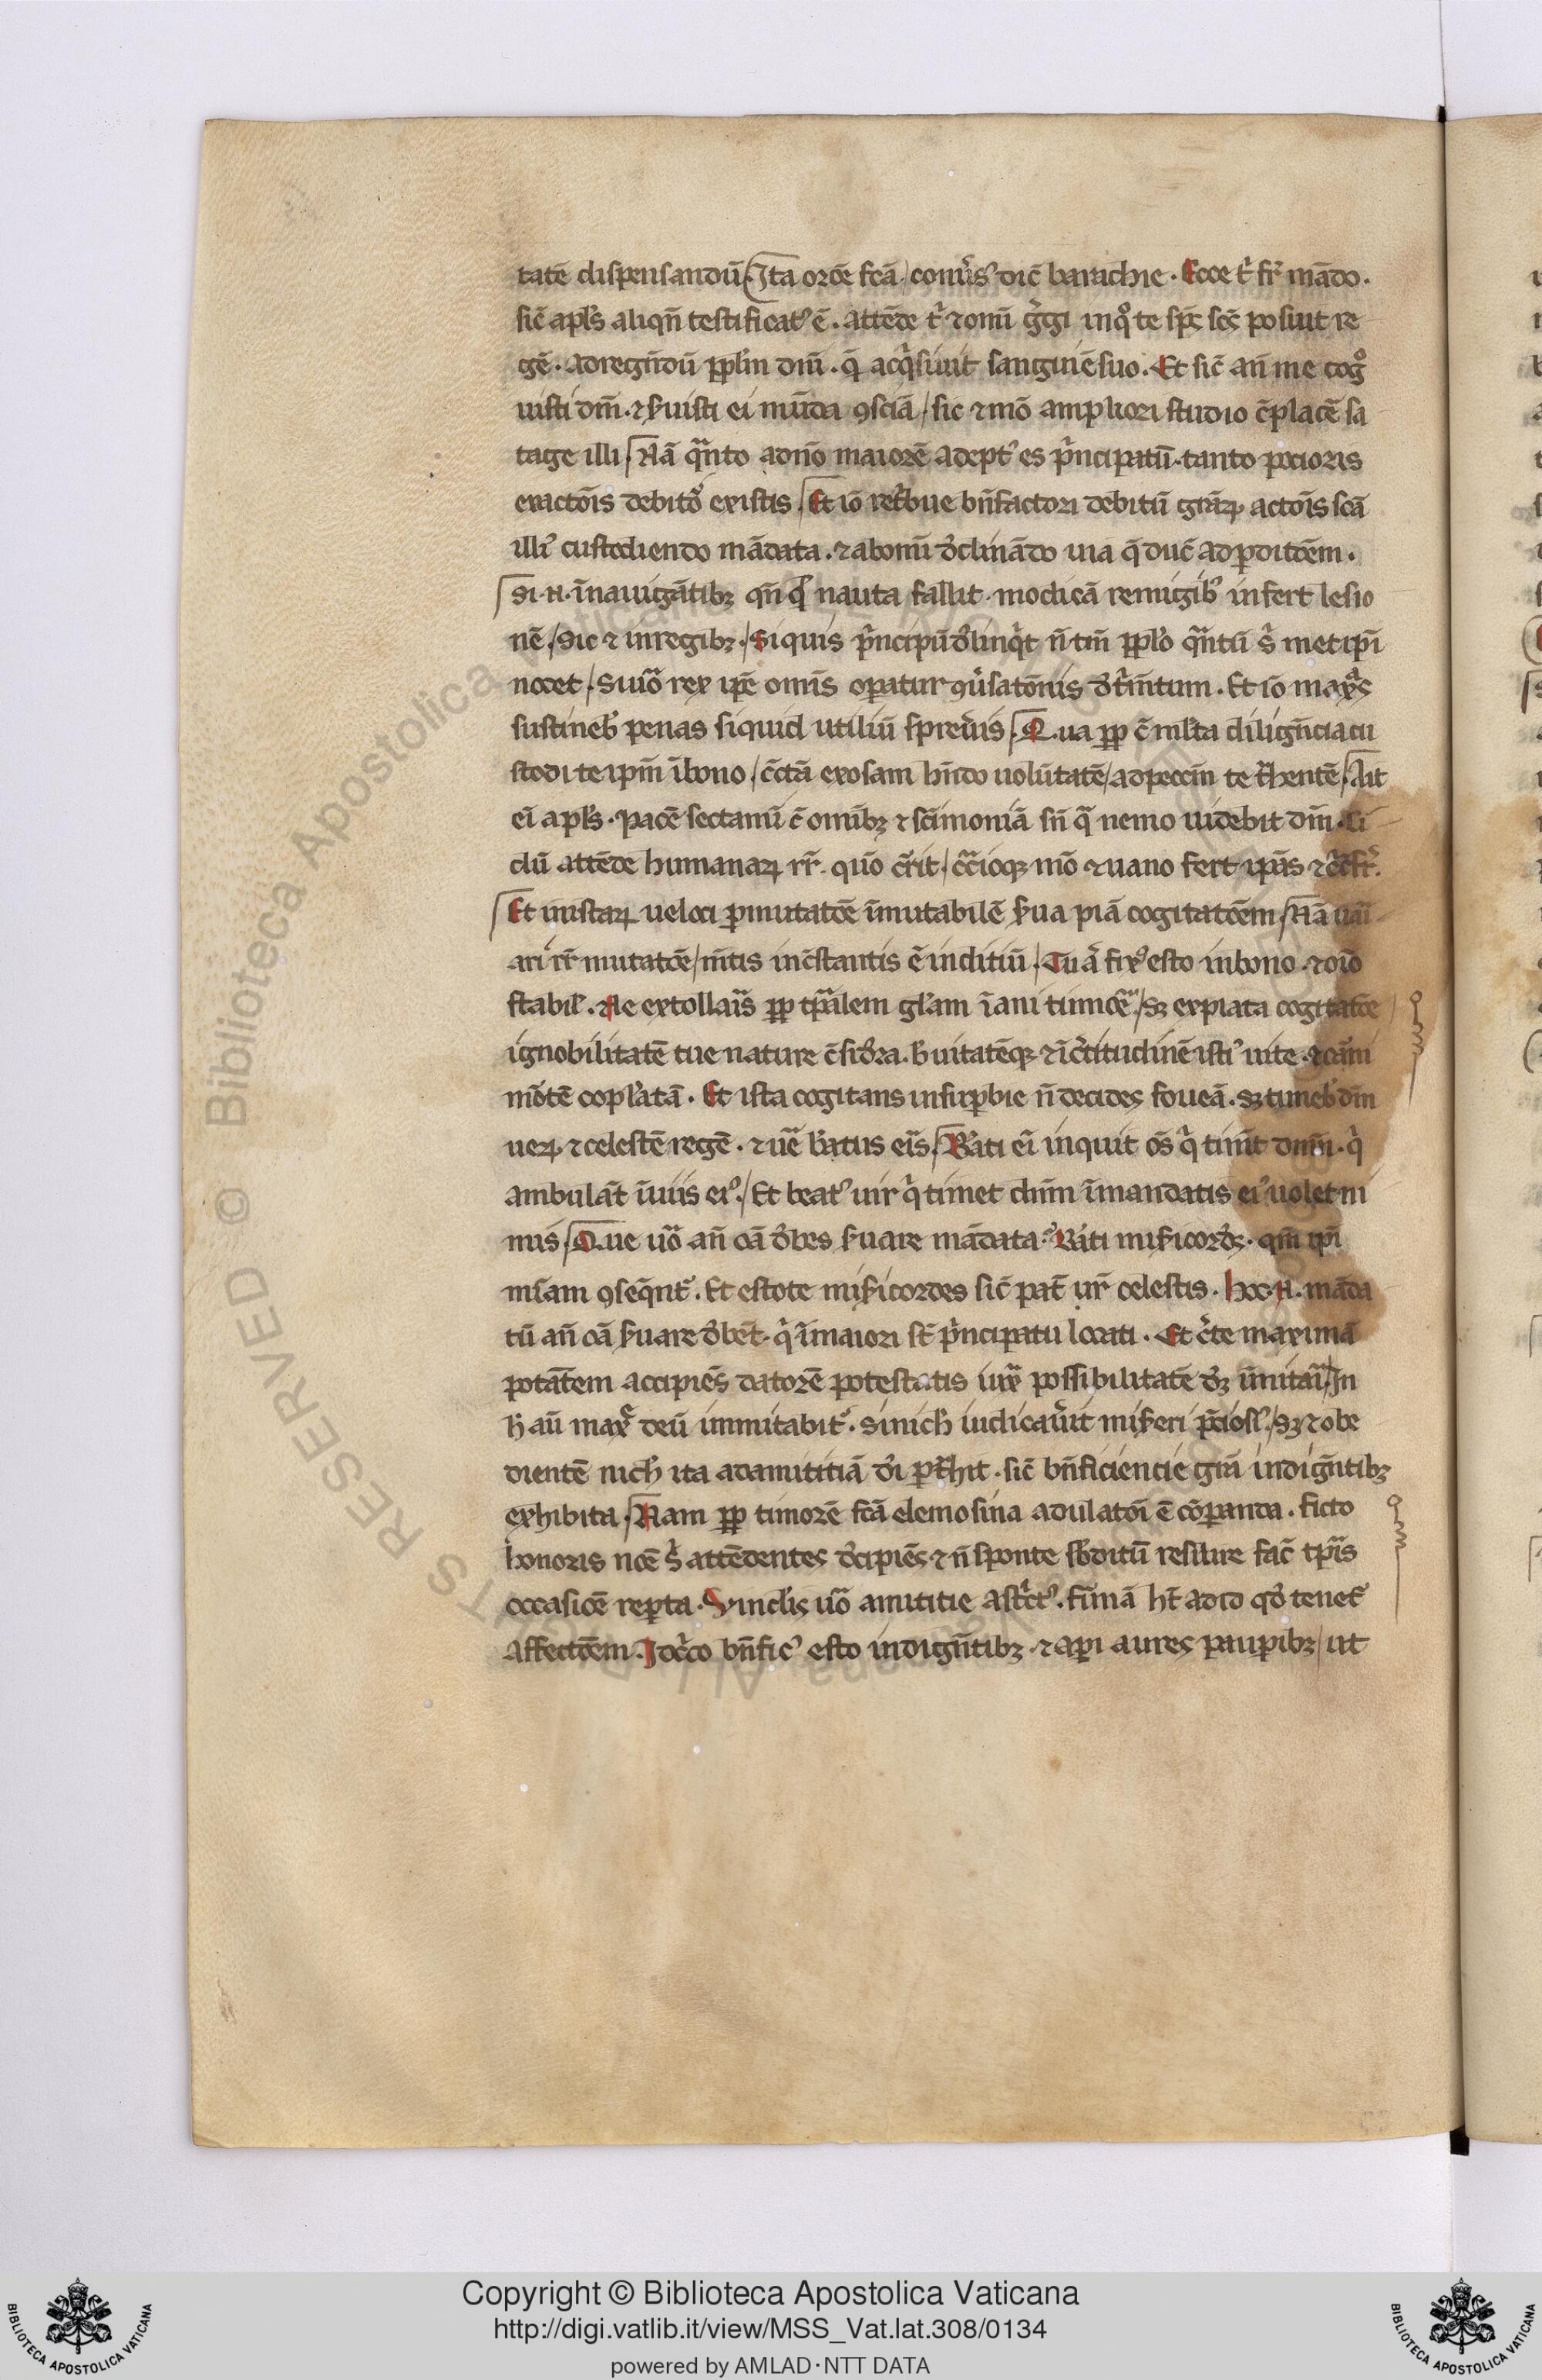 tatē dispensandū. Ita ordē fcā conūs' dic̄ barachie. Ecce t' fr̄ mādo.
sic̄ apl's aliqn̄ testificat' ē. attēde t' ⁊ omī g̉gi in q̊ te sp̄c sc̄s posuit re
gē. ad regn̄dū pp̄lm dn̄i. q̄ acq̉siuit sanguinē suo. Et sic̄ an̄ me cog̊
uisti dm̄. ⁊ ẜuisti ei mūda ꝯsciā / sic ⁊ mō ampliori studio c̄placē̄ sa
tage illi. Nā q̄nto ad n̄o maiorē adept' es p̉ncipatū. tanto pocioris
exactōis debito' existis. Et iō ret̉bue bn̄factori debitū grāꝝ actōis scā
illi' custodiendo mādata. ⁊ ab omī d̉clinādo uia q̄ duc̄ ad ꝑditōem.
Si .n. ī nauigātibꝫ qn̄ q̄ nauta fallit. modicā remigib' infert lesio
nē / sic ⁊ in regibꝫ. Si quis p̉ncipū d̉linq̉t n̄ tm̄ pp̄lo q̄ntū s' metip̄i
nocet. S uō rex ip̄e om̄s oꝑatur ꝯūsatōnis d̉t̉m̄tum. Et iō max̄s
sustineb' penas si quid utiliū spreūis. Qua pp̄ c̄ ml'ta dilign̄cia cu
stodi te ip̄m ī bono / c̄ctā exosam hn̄do uolūtatē / ad peccm̄ te t̉hentē. Ait
ei apl's. pacē sectamī c̄ om̄ibꝫ ⁊ sc̄imoniā sn̄ q̄ nemo uidebit dm̄.
dū attēde humanaꝝ rr̄ quō
Et instaꝝ ueloci ꝑmutatōe īmutabilē ẜua piā cogitatōem. Nā
ari rr̄ mutatōe / mn̄tis inc̄stantis ē inditiū. Tu ā fix' esto in bono. ⁊ oīo
stabil'. Ne extollais pp̄ tꝑalem gl'am ī ani timōe. / sꝫ expiata cogitatōe
ignobilitatē tue nature c̄sid̉ra. b̉uitatēqꝫ ⁊ ic̉titudinē isti' uite.
mōtē copl'atā. Et ista cogitans in suꝑbie n̄ decides foueā. sꝫ timeb' dm̄
ueꝝ ⁊ celestē regē. ⁊ ūe b'atus eis. B'ati ei inquit oēs q̉ timt̄ dn̄m. q̉
ambulāt ī uiis ei'. / Et beat' uir q̉ timet dn̄m ī mandatis ei' uolet ni
mis. Que uō an̄ oīa d̉bes ẜuare mādata. B'ati miẜicord̉s. qm̄ ip̄i
mīam ꝯseq̄nt'. Et estote miẜicordes sic̄ pat̄ ur̄ celestis. hec .n. māda
tū an̄ oīa ẜuare d̉bēt. q̉ ī maiori st̄ p̉ncipatu locati. Et c̉te maximā
potātem accipiēs datorē potestatis iux̄ possibilitatē dꝫ īmitai. In
h' aū max̄ deū immitabit'. si nich' iudicaūit miẜeri p̄ciosi'. / sꝫ ⁊ obe
dientē nich' ita ad amititiā d̉i ꝑt̉hit. sic̄ bn̄ficiencie gr̄a indign̄tibꝫ
exhibita. Nam pp̄ timorē fcā elemosina adulatōi ē cōꝑanda. ficto
honoris noīe s' attēdentes d̉cipiēs ⁊ n̄ sponte sb'ditū resilire fac̄ tꝑis
occasiōe reꝑta. Vinclis uō amititie ast̉ct'. firmā ht̄ ad id qd̉ tenet'
affectōem. Idc̉co bn̄fic' esto indign̄tibꝫ. ⁊ aꝑi aures pauꝑibꝫ / ut
© Biblioteca Apostolica Vaticana ALL RIGHTS RESERVED
BIBLIOTECA APOSTOLICA VATICANA
Copyright © Biblioteca Apostolica Vaticana
http://digi.vatlib.it/view/MSS_Vat.lat.308/0134
powered by AMLAD·NTT DATA
BIBLIOTECA APOSTOLICA VATICANA